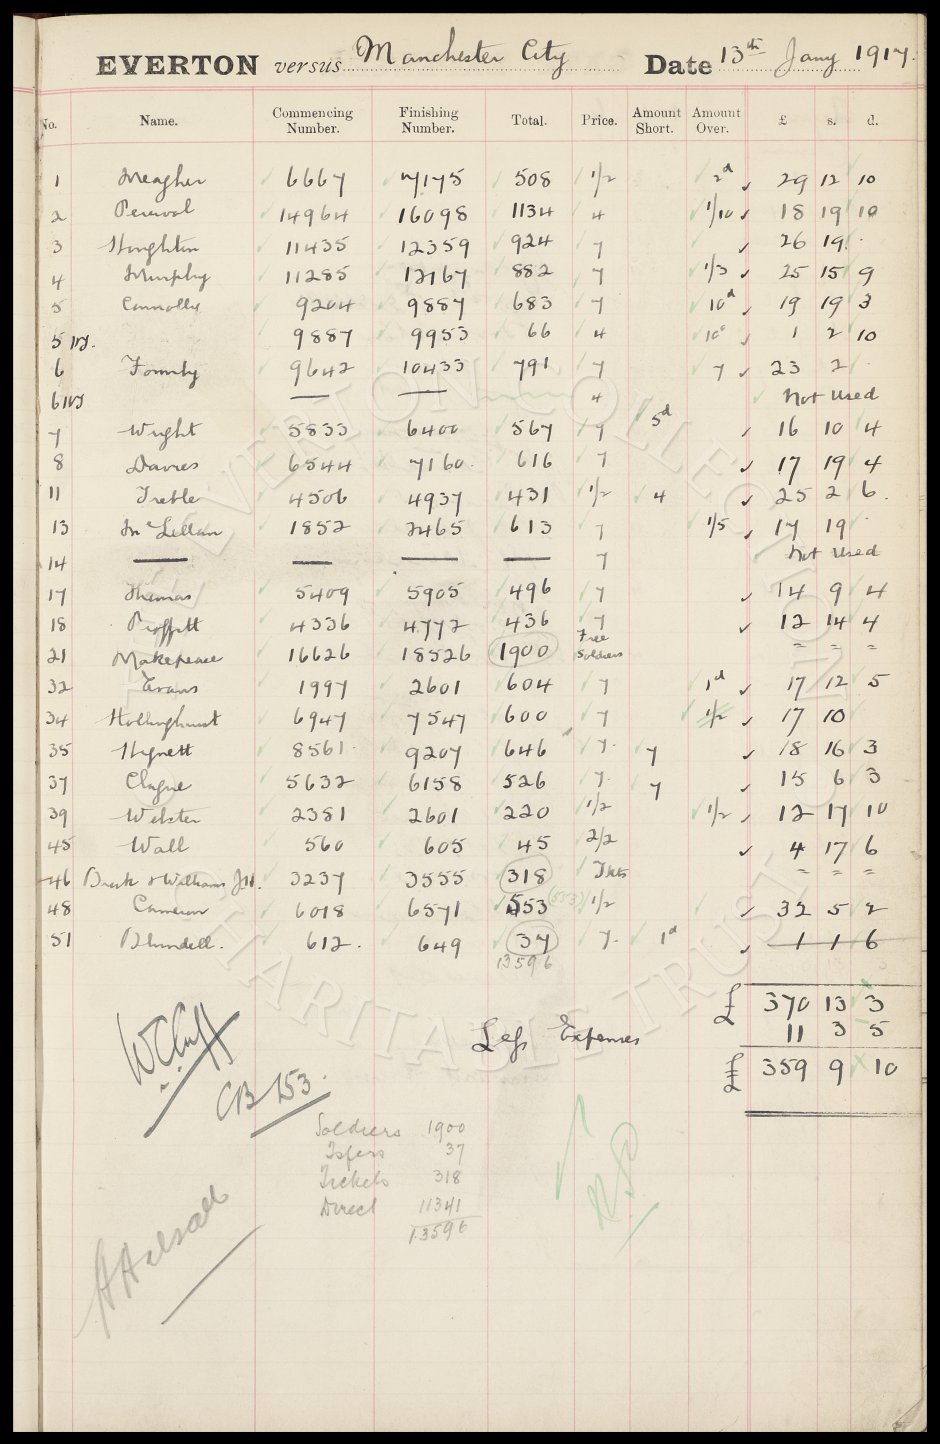 EVERTON versus Manchester City Date 13th Jany 1917.
No. Name. Commencing Number. Finishing Number. Total. Price. Amount Short. Amount Over. £ s. d.
1 Meagher 6667 7175 508 1/2 2d 29 12 10
2 Percival 14964 16098 1134 4 1/10 18 19 10
3 Houghton 11435 12359 924 7 26 19
4 Murphy 11285 12167 882 7 1/3 25 15 9
5 Connolly 9204 9887 683 7 10d 19 19 3
5 9887 9953 66 4 10d 1 2 10
6 Formby 9642 10433 791 7 7 23 2
6 — — 4 Not used
7 Wright 5833 6400 567 7 5d 16 10 4
8 Davies 6544 7160 616 7 17 19 4
11 Treble 4506 4937 431 1/2 4 25 2 6
13 McLellan 1852 2465 613 7 1/5 17 19
14 — — — — 7 Not used
17 Thomas 5409 5905 496 7 14 9 4
18 Proffitt 4336 4772 436 7 12 14 4
21 Makepeace 16626 18526 1900 Free Soldiers = = =
32 Evans 1997 2601 604 7 1d 17 12 5
34 Hollinghurst 6947 7547 600 7 1/2 17 10
35 Hignett 8561 9207 646 7 7 18 16 3
37 Clague 5632 6158 526 7 7 15 6 3
39 Webster 2381 2601 220 1/2 1/2 12 17 10
45 Wall 560 605 45 2/2 4 17 6
46 Brook & Williams 3237 3555 318 Tkts = = =
48 Cameron 6018 6571 553 (553) 1/2 32 5 2
51 Blundell. 612 649 37 7 1d 1 1 6
13596
£ 370 13 3
Less Expenses 11 3 5
£ 359 9 10
W.C. Cuff
CB 153.
Soldiers 1900
Tsfers 37
Tickets 318
Direct 11341
13596
A Halsall